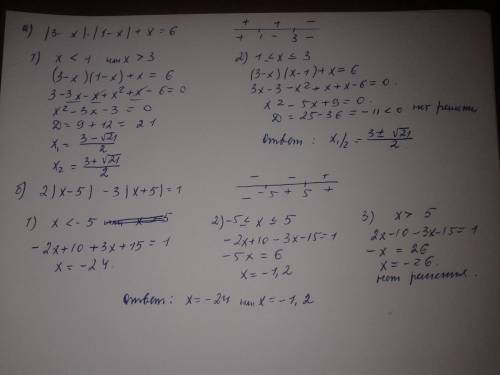 а) |3-x|·|1-x|+x=6
+ + -
+ 1 - 3 -
1) x<1 или x>3
(3-x)(1-x)+x=6
3-3x-x+x²+x-6=0
x²-3x-3=0
D=9+12=21
x₁=(3-√21)/2
x₂=(3+√21)/2
2) 1≤x≤3
(3-x)(x-1)+x=6
3x-3-x²+x+x-6=0.
x²-5x+9=0.
D=25-36=-11<0 нет решения
ответ: x₁/₂=(3±√21)/2
б) 2|x-5|-3|x+5|=1
- - +
- -5 + 5 +
1) x<-5
-2x+10+3x+15=1
x=-24.
2) -5≤x≤5
-2x+10-3x-15=1
-5x=6
x=-1,2
3) x>5
2x-10-3x-15=1
-x=26
x=-26.
нет решения.
ответ: x=-24 или x=-1,2